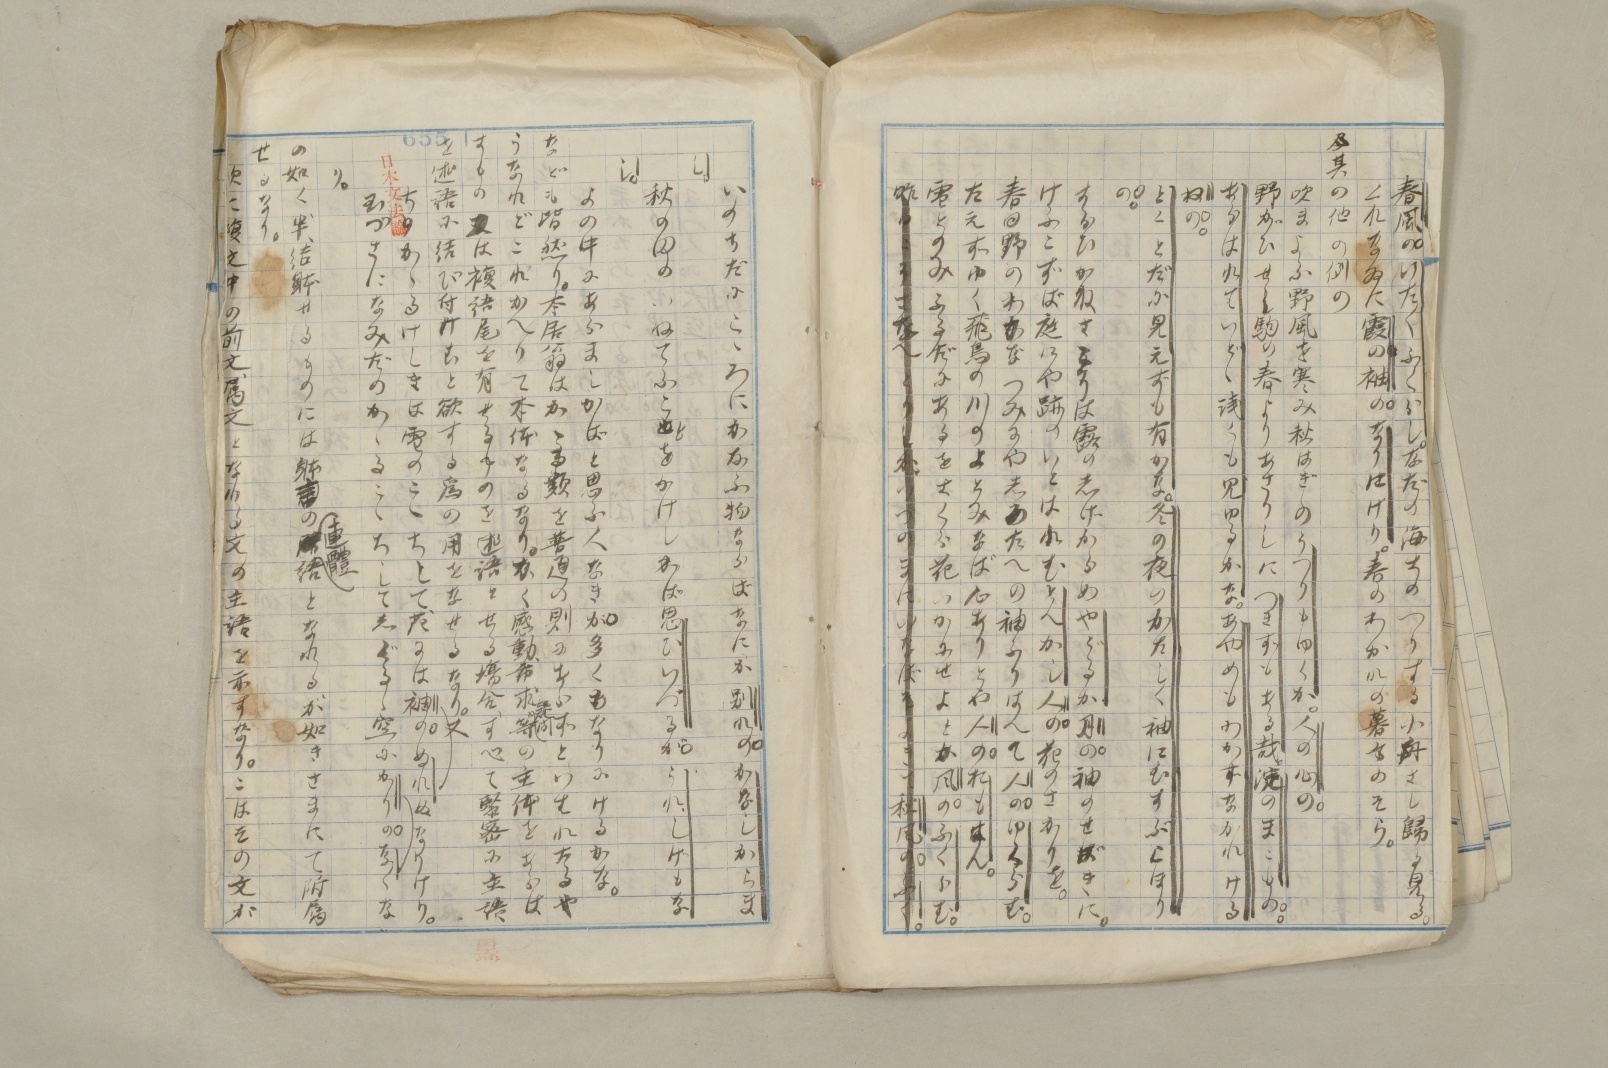 春風のいたくふくらし。なだの海士のつりする小舟さし歸る見る。
くれなゐに霞の袖のなりはげり。春のわかれの暮方のそら。
及其の他の例の
吹まよふ野風を寒み秋はぎのうつりもゆくか。人の心の
野がひせし駒の春よりあさりしにつきずもある哉淀のまこもの。
あらはれていとゞ淺くも見ゆるかな。あやめもわかずなかれける
ねの。
とくとだに見えずも有かな。冬の夜のかたしく袖にむすぶこほり
の。
すゑひかねさこりは露のしげかるめやどるか月の袖のせばきに。
けふこずば庭にや跡のいとはれむとへかし人の花のさかりを。
春日野のわかなつみにやしろたへの袖ふりはへて人のゆくらむ。
たえずゆく飛鳥の川のよどみなば心ありとや人のおもはん。
雪とのみふるだにあるをさくら花いかにせよとか風のふくらむ。
昨日こそさなへとりしかいつのまにいなばそよぎて秋風のふく。
いのちだにこゝろにかなふ物ならばなにか別れのかなしからま
し。
秋の田のいねてふことをかけしかば思ひいづるがうれしげもな
し。
よの中にあらましかばと思ふ人なきが多くもなりにけるかな。
なども皆然り。本居翁はかゝる類を普通の則にあらずといはれたるや
うなれどこれかへりて本体なるなり。かく感動希求疑問等の主体をあらは
すもの又は複語尾を有せるものを述語とせる場合すべて緊密に主語
を述語に結び付けむと欲する爲の用をなせるなり。又
ちりかゝるけしきは雪のこゝちして花には袖のぬれぬなりけり。
玉づさになみだのかゝるこゝちしてしぐるゝ空にかりのなくな
り。
の如く準結体せるものには体言の連體語となれるが如きさまにて附属
せるなり。
次に複文中の前文屬文となれる文の主語を示すなり。こはその文が
日本文法論
655